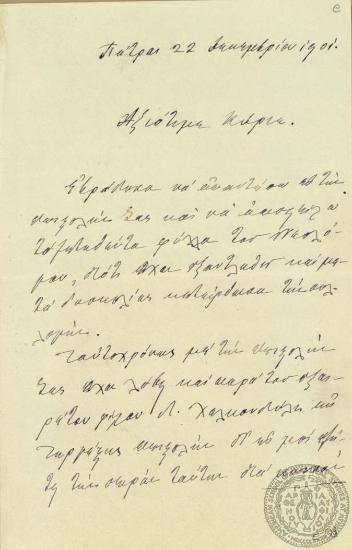 Πάτραι 22 Δεκεμβρίου 1901.
Αξιότιμε Κύριε.
Εβράδυνα να απαντήσω εις την
επιστολήν Σας και να αποστείλω
τα ζητηθέντα φύλλα του Νεολό-
γου, διότι είχαν εξαντληθεί και με-
τά δυσκολίας κατώρθωσα την συλ-
λογήν.
Ταυτοχρόνως με την επιστολήν
Σας είχα λάβη και παρά του εξαι-
ρέτου φίλου Α. Χαλκοκονδύλη
επιστολήν δι' ης μοι
την σειράν ταύτην δια